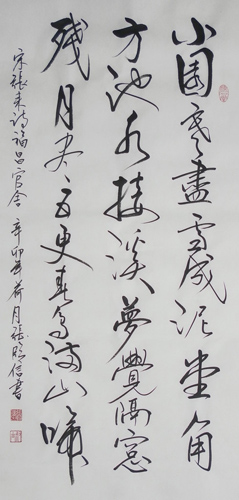 小園寒盡雪成泥堂角
方池水接溪夢覺隔窗
殘月盡五更春鳥滿山啼
宋張耒詩福昌官舍 辛卯年荷月張信書